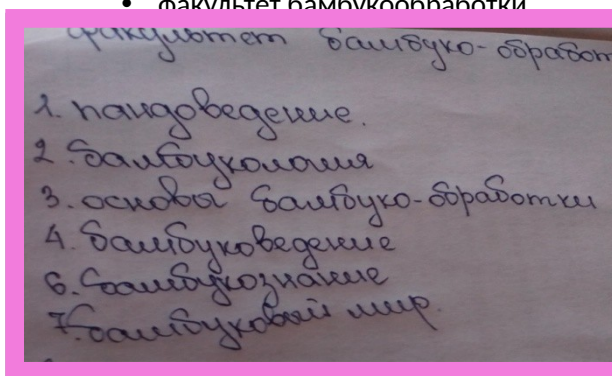 факультет бамбукообработки
факультет бамбуко-обработ
1. пандоведение.
2. бамбукология
3. основы бамбуко-обработки
4. бамбуковедение
6. бамбукознание
7. бамбуковый мир.